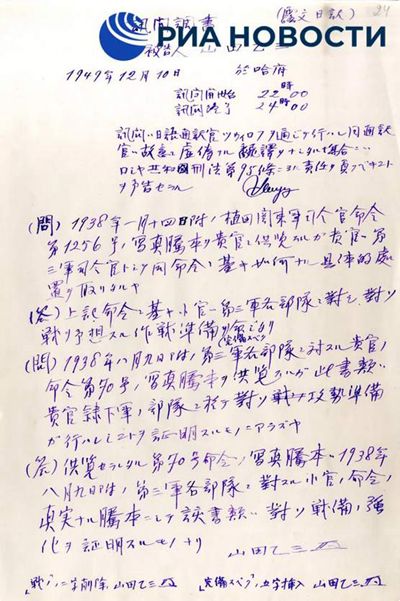 24
訊問調書
(露文日訳)
被告人 山田乙三
РИА НОВОСТИ
1949年12月10日 於哈府
訊問開始 22時00
訊問終了 24時00
訊問ハ日語通訳官ツヴィロフヲ通ジ行ハレ同通訳
官ハ故意ニ虚偽ナル翻訳ヲナシタル場合ニハ
ロシヤ共和国刑法第95条ニヨリ責任ヲ負フベキコト
ヲ予告セラル
(問) 1938年一月十四日附、植田関東軍司令官命令
第1256号ノ写真謄本ヲ貴官ニ供覧スルガ貴官ハ第
三軍司令官トシテ同命令ニ基キ如何ナル具体的処
置ヲ取リタルヤ
(答) 上記命令ニ基キ小官ハ第三軍各部隊ニ対シ、対ソ
戦ヲ予想スル作戦準備ヲ
完備スベク
命ゼリ
(問) 1938年八月九日附、第三軍各部隊ニ対スル貴官ノ
命令第90号ノ写真謄本ヲ供覧スルガ此書類ハ
貴官隷下軍ノ部隊ニ於テ対ソ戦ノ攻勢準備
ガ行ハレシコトヲ証明スルモノニアラズヤ
(答) 供覧セラレタル第90号命令ノ写真謄本ハ1938年
八月九日附ノ第三軍各部隊ニ対スル小官ノ命令ノ
真実ナル謄本ニシテ該書類ハ対ソ戦備ノ強
化ヲ証明スルモノナリ
山田乙三
「戦」ノ一字削除 山田乙三 「完備スベク」五字挿入 山田乙三